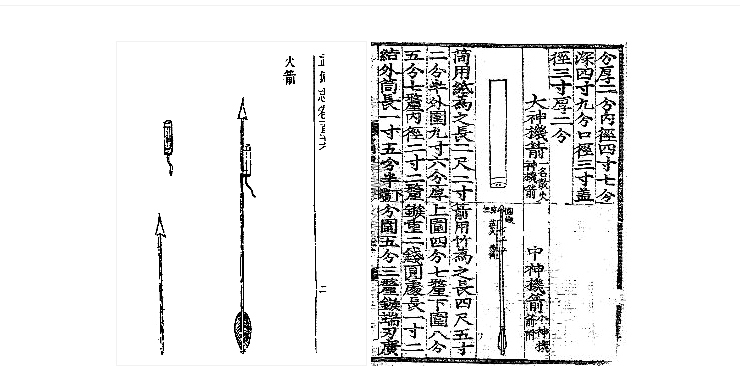 火箭
二
分厚二分內徑四寸七分
深四寸九分口徑三寸蓋
徑三寸厚二分
大神機箭
一名散火
神機箭
筒用紙為之長二尺二寸
二分半外圍九寸六分厚
五分七釐內徑二寸二釐
結外筒長一寸五分半下
中神機箭
小神機
箭附
箭用竹為之長四尺五寸
上圍四分七釐下圍八分
鏃重二錢圓處長一寸二
分圍五分三釐鏃端刃廣